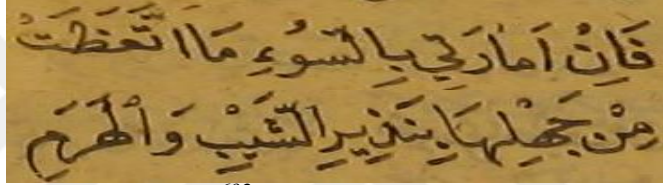 فَاِنَّ اَمَّارَتِي بِالسُّوءِ مَا اتَّعَظَتْ
مِنْ جَهْلِهَا بِنَذِيرِ الشَّيْبِ وَالْهَرَمِ